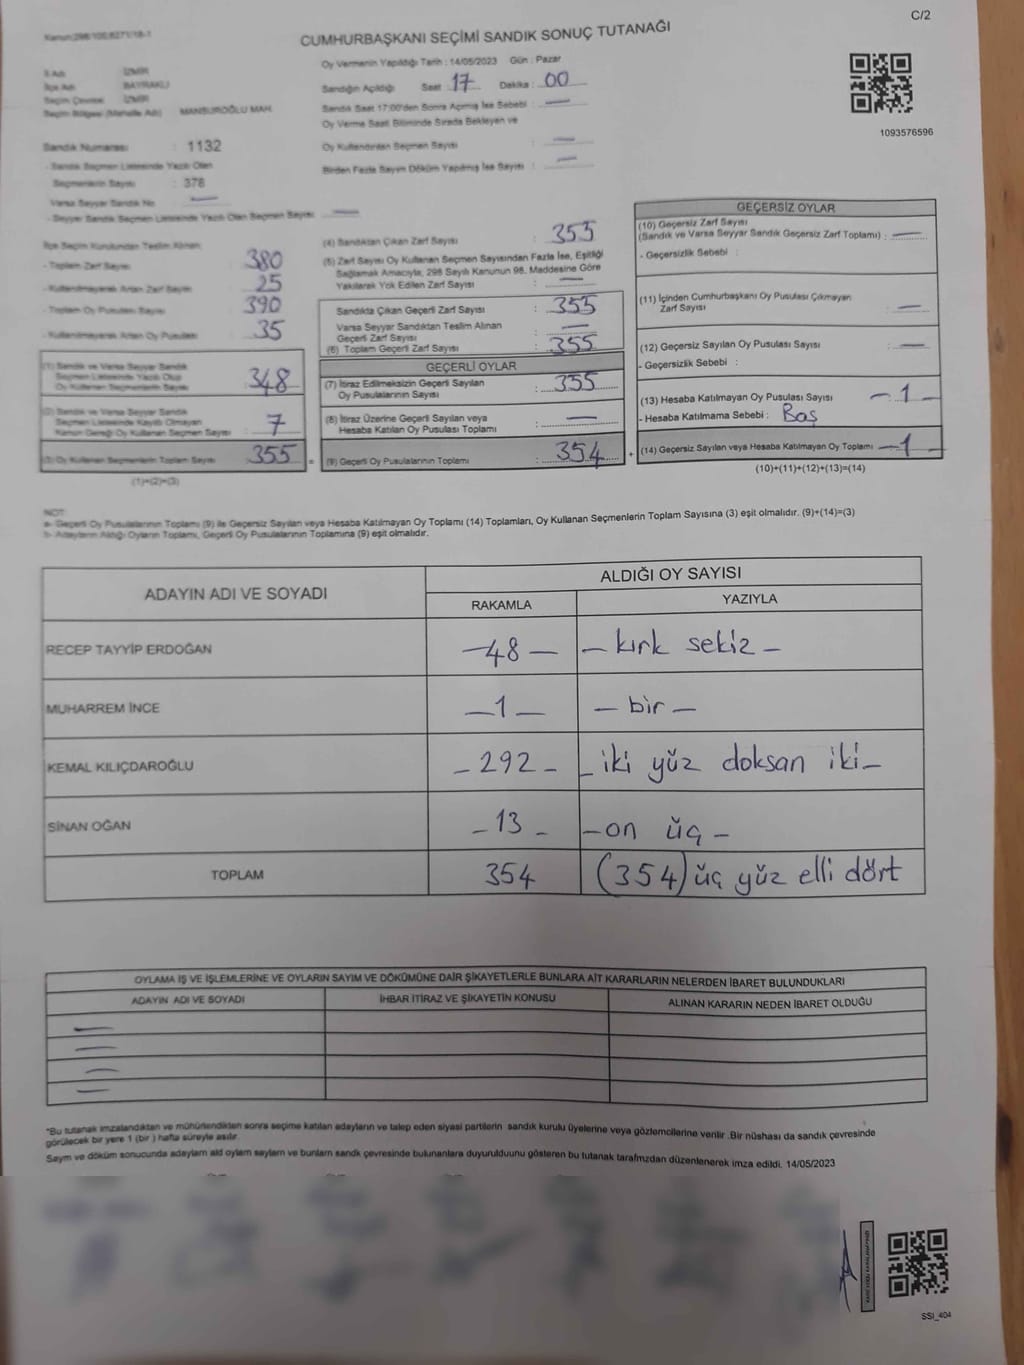 C/2
Kanun:298/100,6271/18-1
CUMHURBAŞKANI SEÇİMİ SANDIK SONUÇ TUTANAĞI
İl Adı İZMİR
İlçe Adı BAYRAKLI
Seçim Çevresi İZMİR
Seçim Bölgesi (Mahalle Adı) MANSUROĞLU MAH.
Sandık Numarası : 1132
- Sandık Seçmen Listesinde Yazılı Olan
Seçmenlerin Sayısı : 378
Varsa Seyyar Sandık No —
- Seyyar Sandık Seçmen Listesinde Yazılı Olan Seçmen Sayısı —
Oy Vermenin Yapıldığı Tarih : 14/05/2023 Gün : Pazar
Sandığın Açıldığı Saat : 17 Dakika : 00
Sandık Saat 17:00'den Sonra Açılmış İse Sebebi : —
Oy Verme Saati Bitiminde Sırada Bekleyen ve
Oy Kullandırılan Seçmen Sayısı : —
Birden Fazla Sayım Döküm Yapılmış İse Sayısı : —
1093576596
İlçe Seçim Kurulundan Teslim Alınan
- Toplam Zarf Sayısı 380
- Kullanılmayarak Artan Zarf Sayısı 25
- Toplam Oy Pusulası Sayısı 390
- Kullanılmayarak Artan Oy Pusulası 35
(1) Sandık ve Varsa Seyyar Sandık
Seçmen Listesinde Yazılı Olup
Oy Kullanan Seçmenlerin Sayısı : 348
(2) Sandık ve Varsa Seyyar Sandık
Seçmen Listesinde Kayıtlı Olmayan
Kanun Gereği Oy Kullanan Seçmen Sayısı : 7
(3) Oy Kullanan Seçmenlerin Toplam Sayısı : 355
(1)+(2)=(3)
(4) Sandıktan Çıkan Zarf Sayısı : 355
(5) Zarf Sayısı Oy Kullanan Seçmen Sayısından Fazla İse, Eşitliği
Sağlamak Amacıyla, 298 Sayılı Kanunun 98. Maddesine Göre
Yakılarak Yok Edilen Zarf Sayısı : —
Sandıkta Çıkan Geçerli Zarf Sayısı : 355
Varsa Seyyar Sandıktan Teslim Alınan
Geçerli Zarf Sayısı : —
(6) Toplam Geçerli Zarf Sayısı : 355
GEÇERLİ OYLAR
(7) İtiraz Edilmeksizin Geçerli Sayılan
Oy Pusulalarının Sayısı : 355
(8) İtiraz Üzerine Geçerli Sayılan veya
Hesaba Katılan Oy Pusulası Toplamı : —
= (9) Geçerli Oy Pusulalarının Toplamı : 354 +
GEÇERSİZ OYLAR
(10) Geçersiz Zarf Sayısı
(Sandık ve Varsa Seyyar Sandık Geçersiz Zarf Toplamı) : —
- Geçersizlik Sebebi :
(11) İçinden Cumhurbaşkanı Oy Pusulası Çıkmayan
Zarf Sayısı : —
(12) Geçersiz Sayılan Oy Pusulası Sayısı : —
- Geçersizlik Sebebi :
(13) Hesaba Katılmayan Oy Pusulası Sayısı — 1 —
- Hesaba Katılmama Sebebi : Boş
(14) Geçersiz Sayılan veya Hesaba Katılmayan Oy Toplamı — 1 —
(10)+(11)+(12)+(13)=(14)
NOT:
a- Geçerli Oy Pusulalarının Toplamı (9) ile Geçersiz Sayılan veya Hesaba Katılmayan Oy Toplamı (14) Toplamları, Oy Kullanan Seçmenlerin Toplam Sayısına (3) eşit olmalıdır. (9)+(14)=(3)
b- Adayların Aldığı Oyların Toplamı, Geçerli Oy Pusulalarının Toplamına (9) eşit olmalıdır.
ADAYIN ADI VE SOYADI ALDIĞI OY SAYISI
RAKAMLA YAZIYLA
RECEP TAYYİP ERDOĞAN — 48 — — kırk sekiz —
MUHARREM İNCE — 1 — — bir —
KEMAL KILIÇDAROĞLU — 292 — — iki yüz doksan iki —
SİNAN OĞAN — 13 — — on üç —
TOPLAM 354 (354) üç yüz elli dört
OYLAMA İŞ VE İŞLEMLERİNE VE OYLARIN SAYIM VE DÖKÜMÜNE DAİR ŞİKAYETLERLE BUNLARA AİT KARARLARIN NELERDEN İBARET BULUNDUKLARI
ADAYIN ADI VE SOYADI İHBAR İTİRAZ VE ŞİKAYETİN KONUSU ALINAN KARARIN NEDEN İBARET OLDUĞU
—
—
—
—
*Bu tutanak imzalandıktan ve mühürlendikten sonra seçime katılan adayların ve talep eden siyasi partilerin sandık kurulu üyelerine veya gözlemcilerine verilir .Bir nüshası da sandık çevresinde
görülecek bir yere 1 (bir ) hafta süreyle asılır.
Sayım ve döküm sonucunda adayların aldı oyların sayların ve bunların sandk çevresinde bulunanlara duyurulduunu gösteren bu tutanak tarafmzdan düzenlenerek imza edildi. 14/05/2023
SSI_404